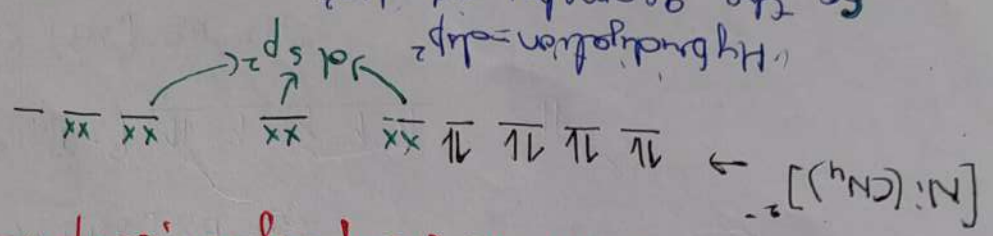 [Ni(CN₄)]²⁻ → 1L 1L 1L 1L xx xx xx xx _
d s p²
∴ Hybridization = dsp²
So the